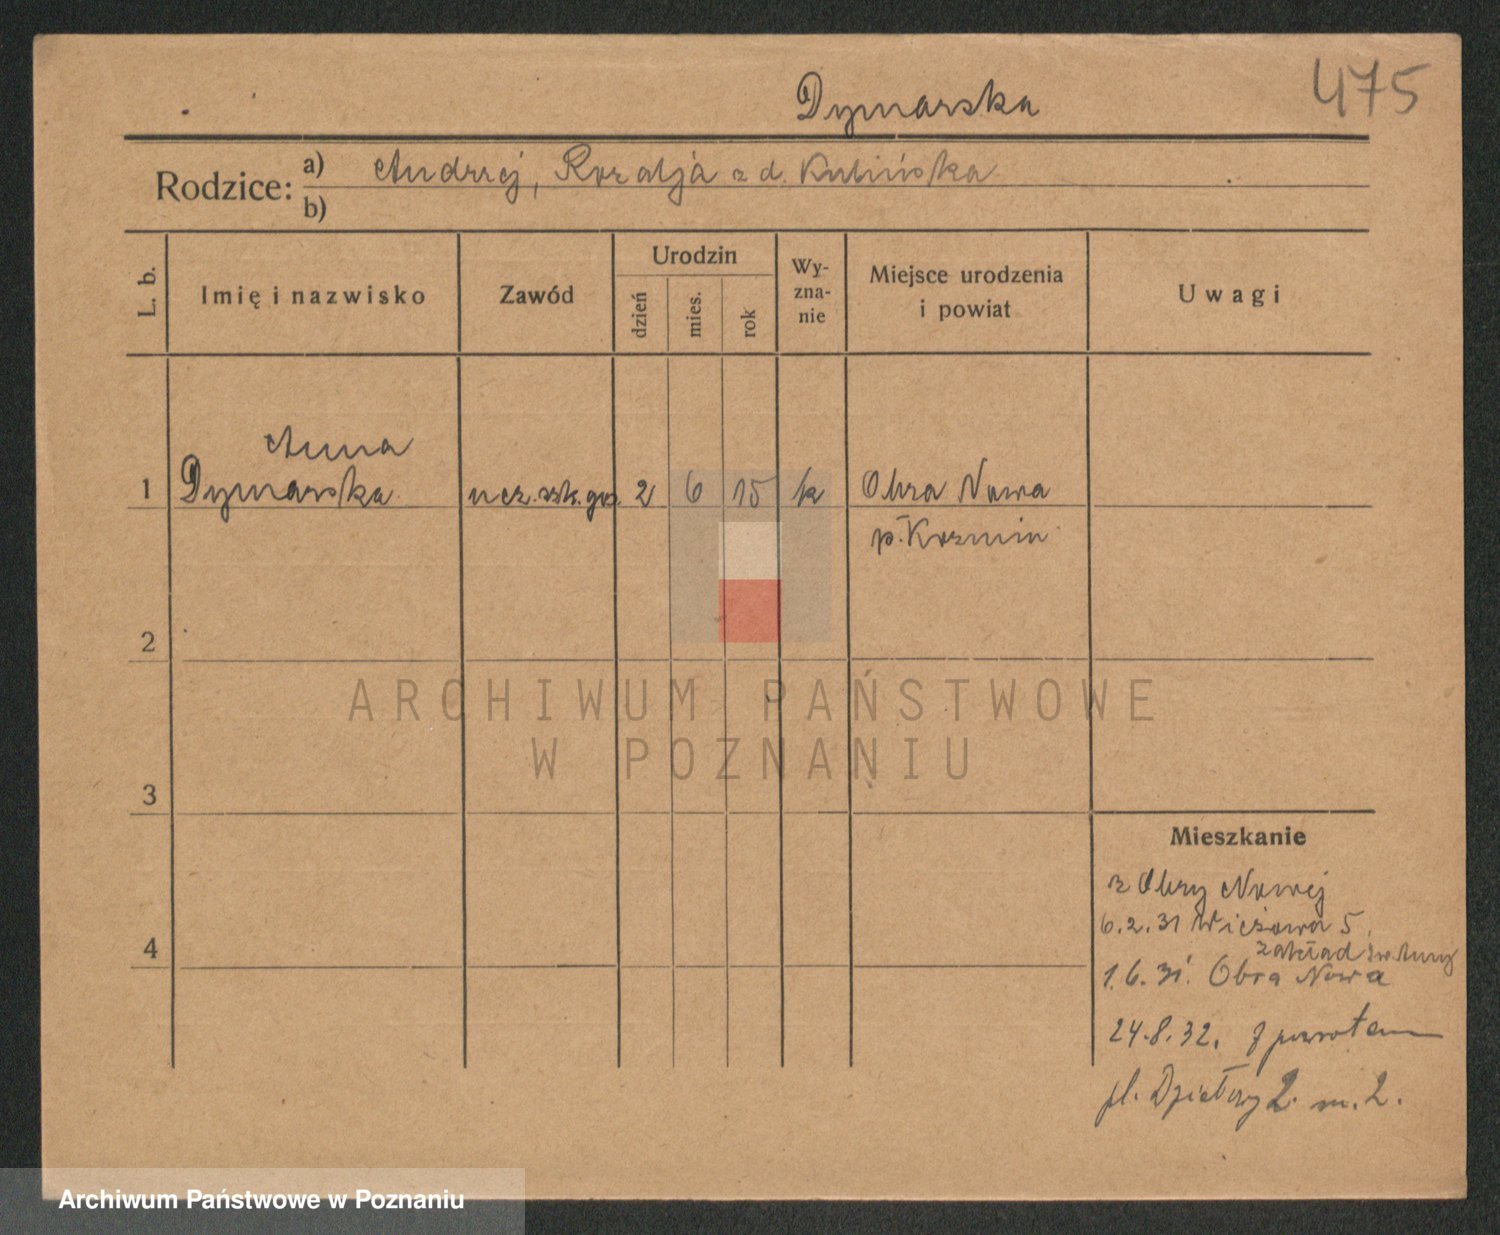 475
Dymarska
Rodzice: a) Andrzej, Rozalja z d. Kubińska
b)
L. b.
Imię i nazwisko
Zawód
Urodzin
dzień
mies.
rok
Wy-
zna-
nie
Miejsce urodzenia
i powiat
Uwagi
Anna
1 Dymarska ucz. szk. gos. 2 6 15 k Obra Nowa
p. Kozmin
2
ARCHIWUM PAŃSTWOWE
W POZNANIU
3
Mieszkanie
z Obry Nowej
6.2.31 Wieżowa 5
4
zakład św. Anny
1.6.31. Obra Nowa
24.8.32. z powrotem
pl. Działowy 2 m. 2.
Archiwum Państwowe w Poznaniu